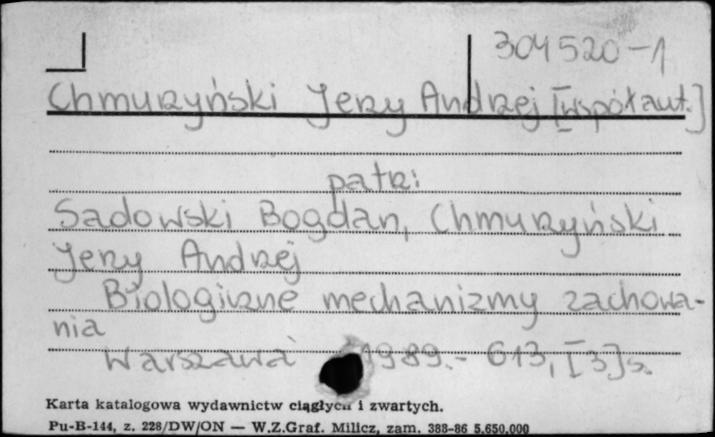 304520-1
Chmurzyński Jerzy Andrzej [współaut.]
patrz:
Sadowski Bogdan, Chmurzyński
Jerzy Andrzej
Biologiczne mechanizmy zachowa-
nia
Warszawa 1989.- 613, [3] s.
Karta katalogowa wydawnictw ciągłych i zwartych.
Pu-B-144, z. 228/DW/ON — W.Z.Graf. Milicz, zam. 388-86 5.650.000